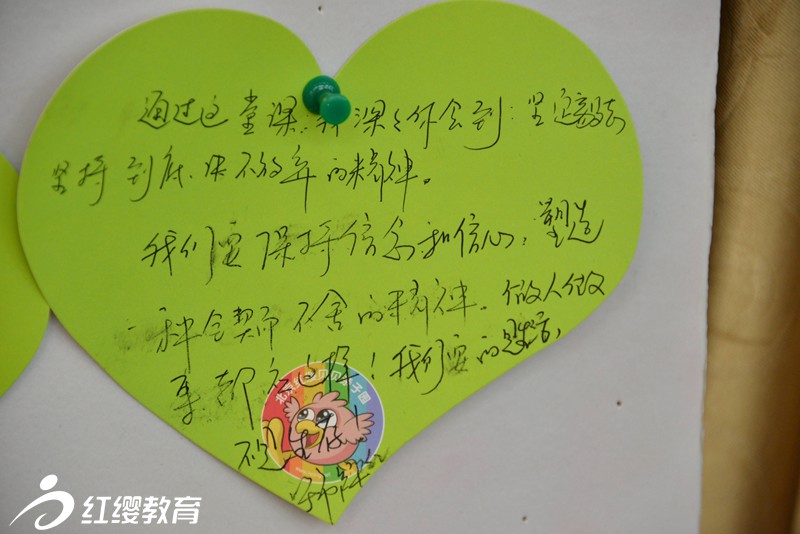 通过这堂课,我深深体会到:坚定毅志
坚持到底、决不放弃的精神。
我们要保持信念和信心,塑造
一种金契而不舍的精神。做人做
事都应这样!我们要的是生活,
不是生存!
红缨教育